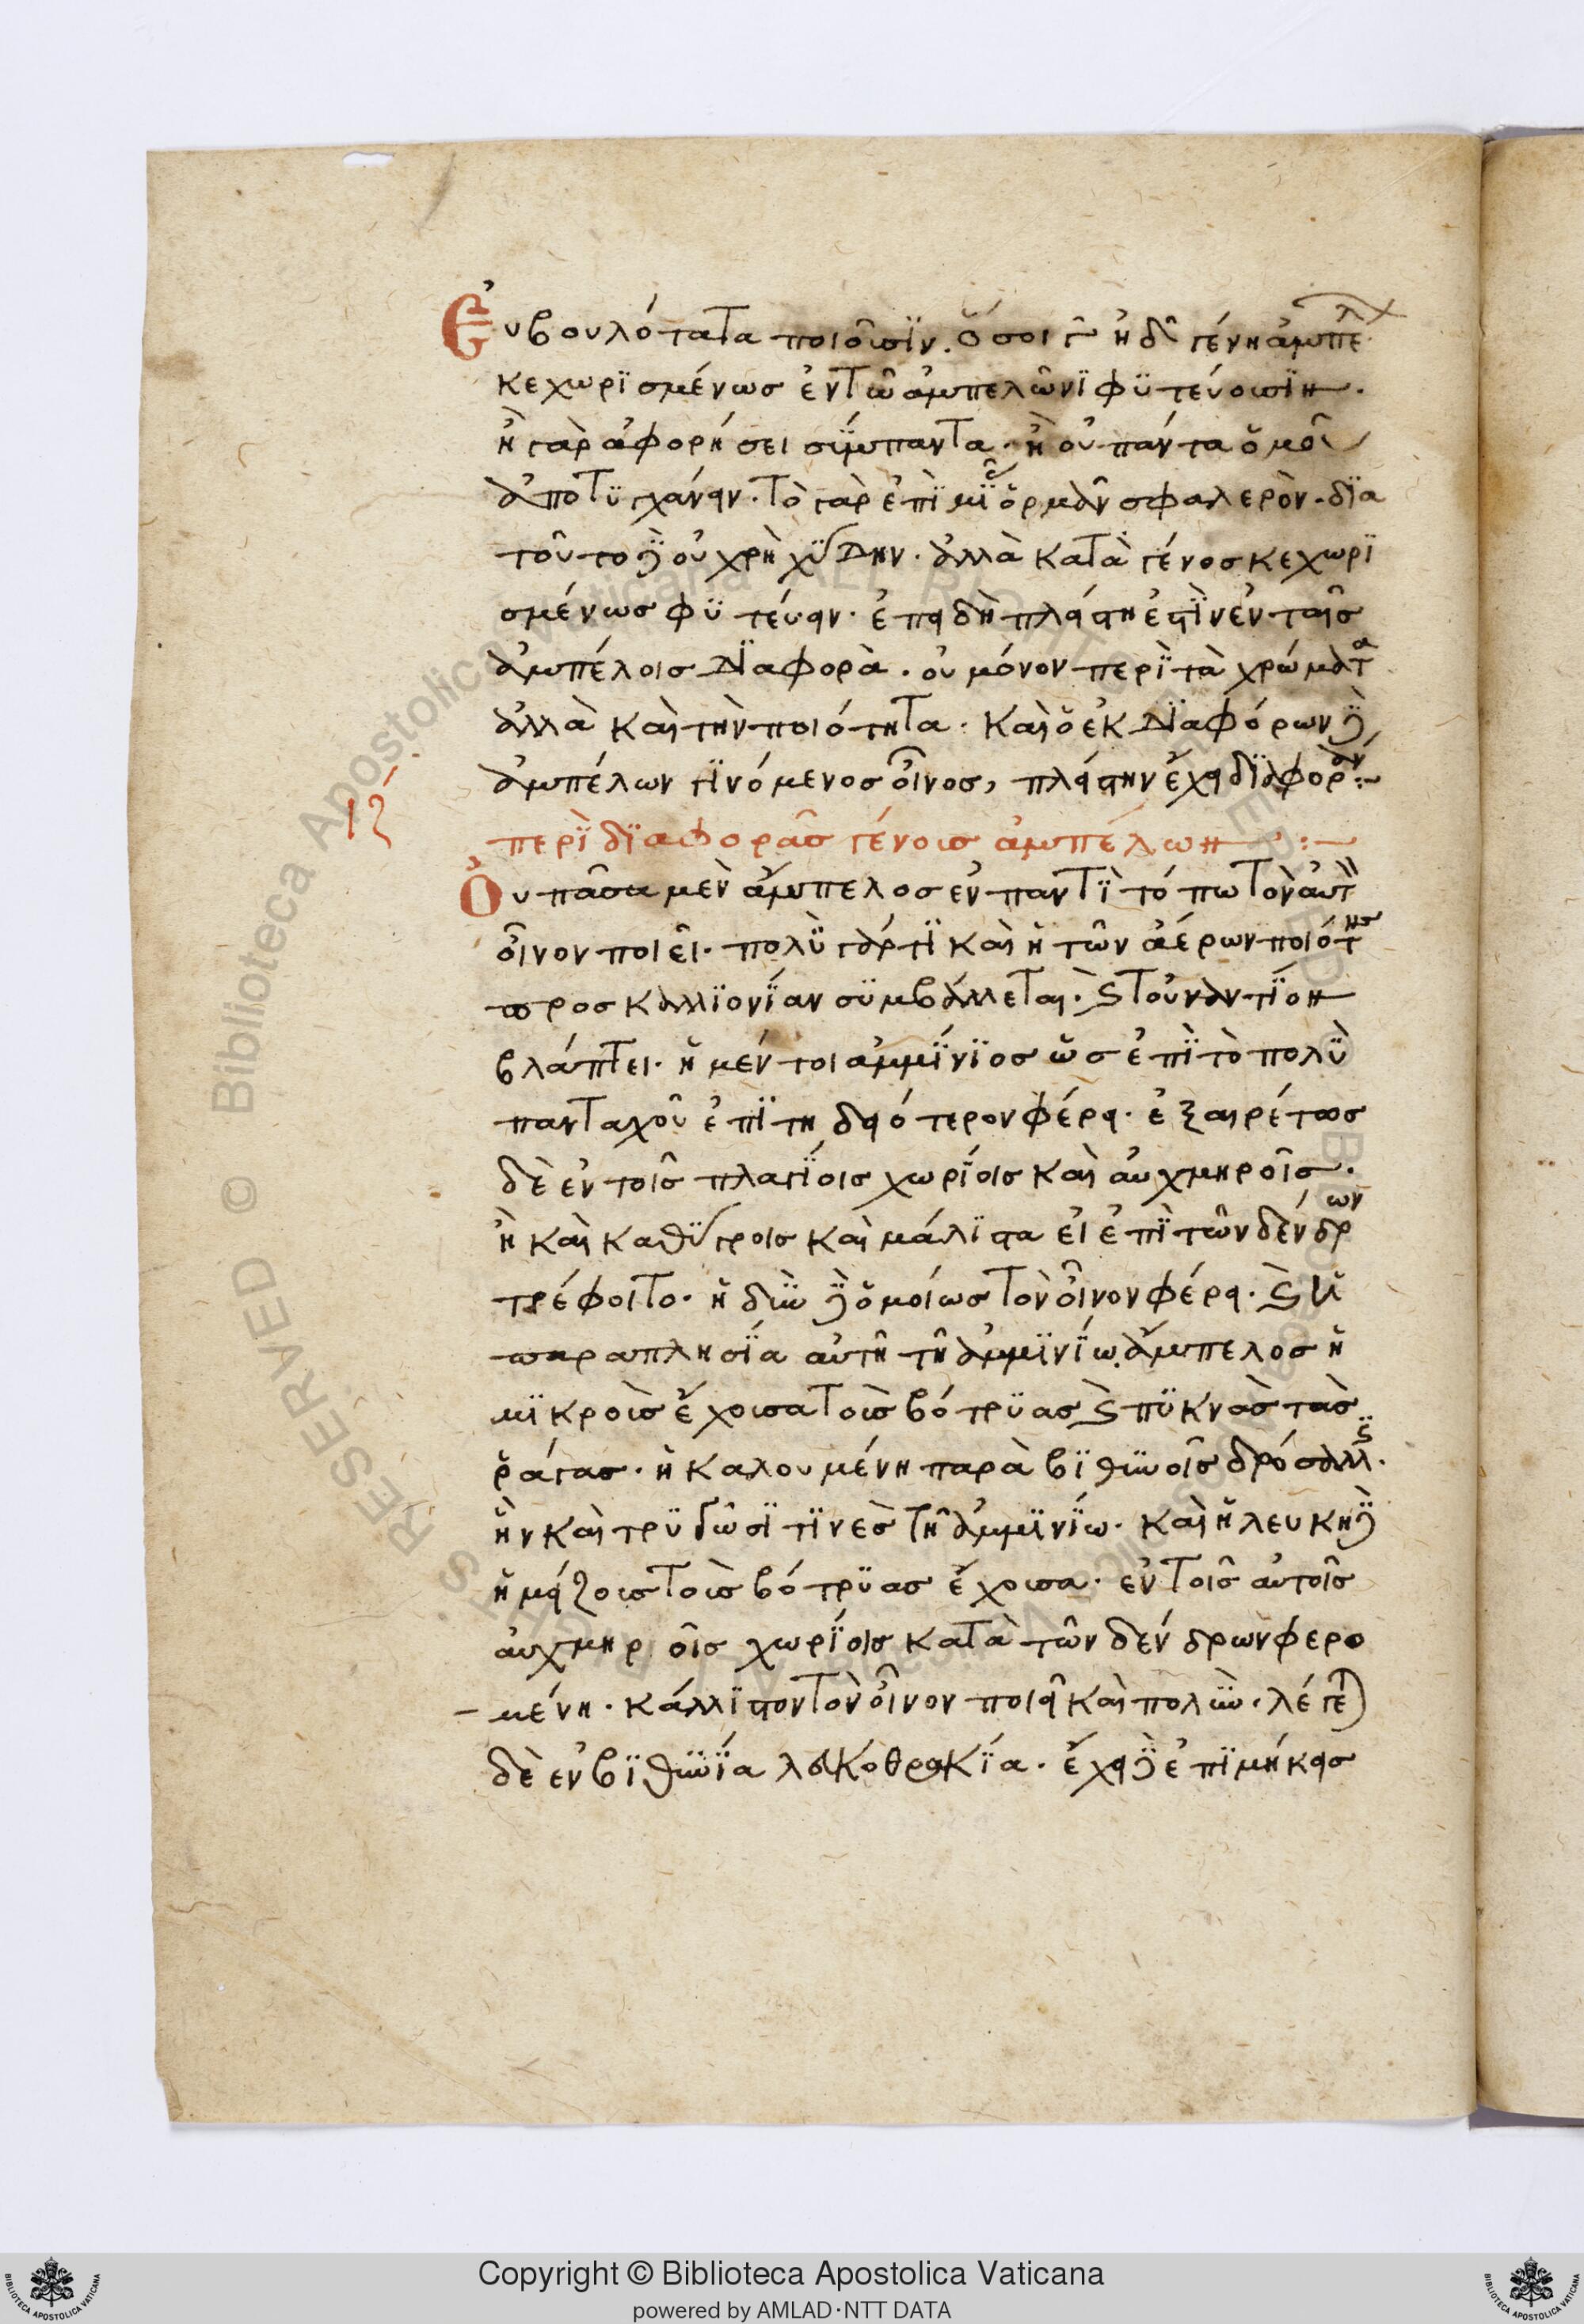 Εὐβουλότατα ποιοῦσϊν. ὅσοι γ ἢ δ γένη ἀμπελ
κεχωρϊσμένως ἐν τῶ ἀμπελῶνϊ φϋτεύουσϊν.
ἢ γὰρ ἀφορήσει σΰμπαντα. ἢ οὐ πάντα ὁμοῦ
ἀποτϋγχάνειν. τὸ γὰρ ἐπῒ μϊᾶς ὁρμᾶν σφαλερὸν. δϊα
τοῦτο δὲ οὐ χρὴ χΰδην. ἀλλὰ κατὰ γένος κεχωρϊ
σμένως φϋτεύειν. ἐπειδὴ πλείστη ἐστῒν ἐν ταῖς
ἀμπέλοις δϊαφορὰ. οὐ μόνον περῒ τὰ χρώματα
ἀλλὰ καὶ τὴν ποιότητα. καὶ ὁ ἐκ δϊαφόρων δὲ
ἀμπέλων γϊνόμενος οἶνος, πλείστην ἔχει δϊαφοράν:~
ιζ
περῒ δϊαφορᾶς γένους ἀμπέλων:~
Οὐ πᾶσα μὲν ἄμπελος ἐν παντῒ τόπω τὸν αὐτὸν
οἶνον ποιεῖ. πολῢ γάρ τϊ καὶ ἡ τῶν ἀέρων ποιότης
προς καλλϊονΐαν σϋμβάλλεται. καὶ τοὐναντΐον
βλάπτει. ἡ μέν τοι ἀμμϊνΐος ὡς ἐπῒ τὸ πολῢ
πανταχοῦ ἐπϊτηδειότερον φέρει. ἐξαιρέτως
δὲ ἐν τοῖς πλαγΐοις χωρΐοις καὶ αὐχμηροῖς.
ἢ καὶ καθΰγροις καὶ μάλϊστα εἰ ἐπῒ τῶν δένδρων
τρέφοιτο. ἡδῢν δὲ ὁμοίως τὸν οἶνον φέρει. καὶ ἡ
παραπλησΐα αὐτῆ τῆ ἀμμϊνΐω ἄμπελος ἡ
μϊκροὺς ἔχουσα τοὺς βότρϋας καὶ πϋκνὰς τὰς
ῥάγας. ἡ καλουμένη παρὰ βϊθϋνοῖς δρόσαλλϊς.
ἣν καὶ τρϋδῶσϊ τϊνὲς τῆ ἀμμϊνΐω. καὶ ἡ λευκὴ δὲ
ἡ μείζους τοὺς βότρϋας ἔχουσα. ἐν τοῖς αὐτοῖς
αὐχμηροῖς χωρΐοις κατὰ τῶν δένδρων φερο
μένη. κάλλϊστον τὸν οἶνον ποιεῖ καὶ πολῢν. λέγεται
δὲ ἐν βϊθϋνΐα λευκοθρακΐα. ἔχει δὲ ἐπϊμήκεις